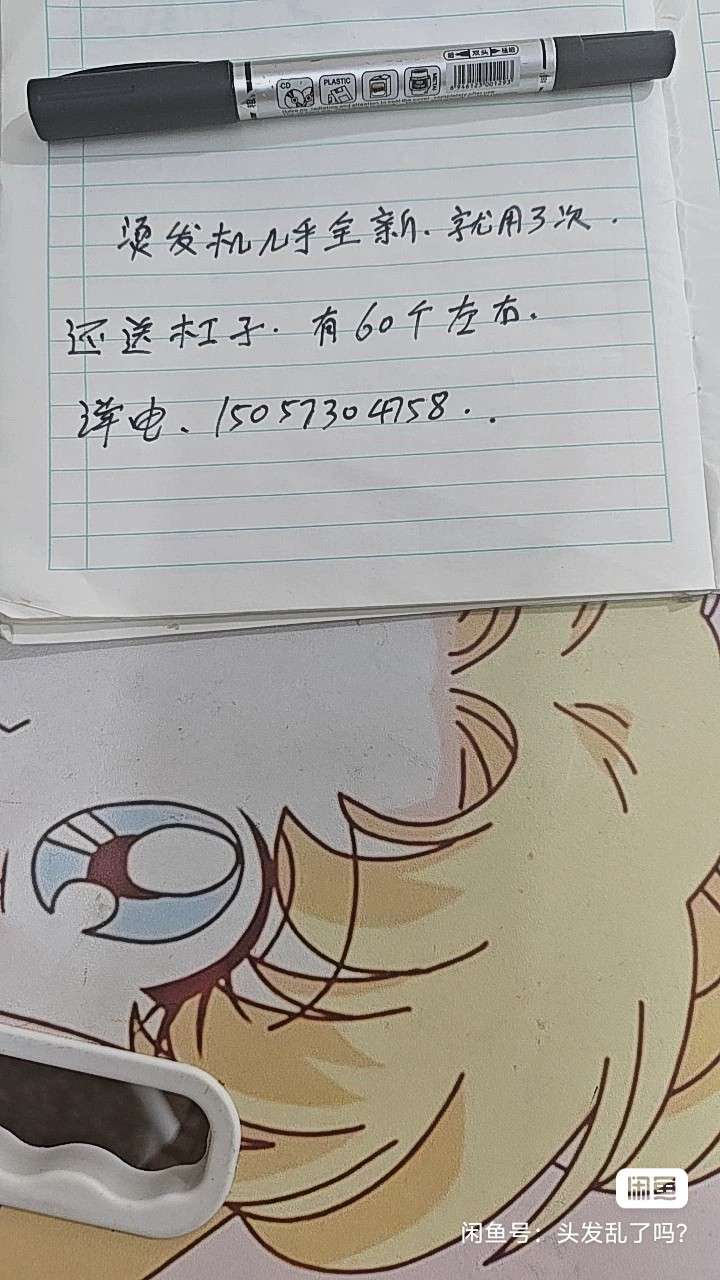 CD
PLASTIC
双头
烫发机几乎全新、就用了次.
还送杠子.有60个左右.
详电、15057304758..
闲鱼
闲鱼号：头发乱了吗？